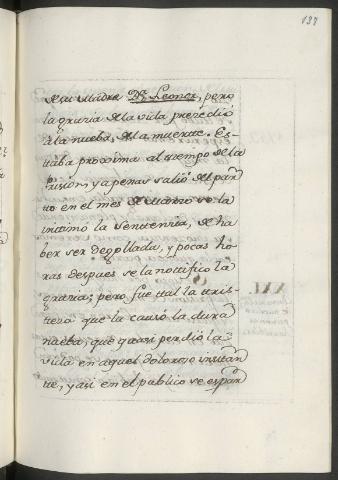 137
de su Madre D.ª Leonor, pero
la grazia de la vida precedió
à la nueba, de la muerte. Es-
taba proxima al tiempo de la
Prision, y apenas salió del par-
to en el mes de Marzo se la
intimo la Sentenzia, de ha-
ber ser degollada, y pocas ho-
ras despues se la nottificó la
grazia; pero fue tal la tris-
teza que la causó la dura
nueba, que quasi perdió la
vida en aquel doloroso instan-
te, y asi en el publico se espar-
XXI.